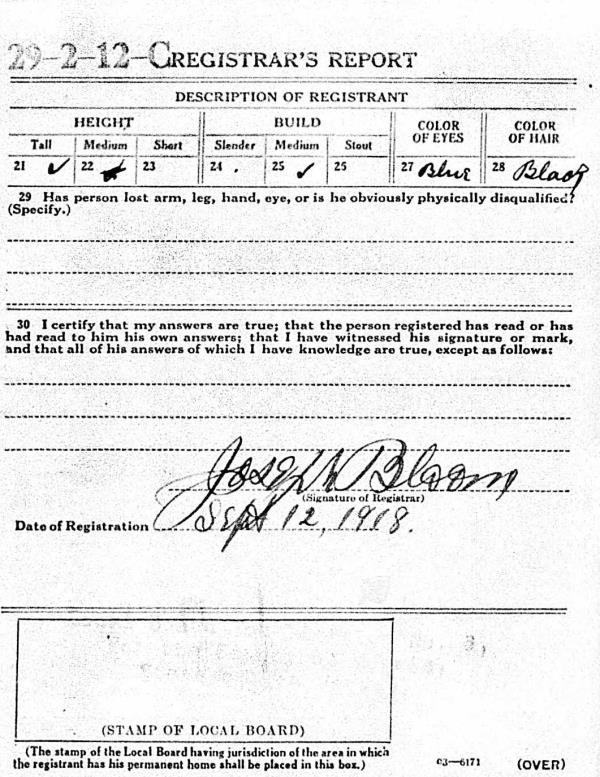 29-2-12-C REGISTRAR'S REPORT
DESCRIPTION OF REGISTRANT
HEIGHT BUILD COLOR OF EYES COLOR OF HAIR
Tall Medium Short Slender Medium Stout
21 ✓ 22 23 24 25 ✓ 25 27 Blue 28 Black
29 Has person lost arm, leg, hand, eye, or is he obviously physically disqualified?
(Specify.)
30 I certify that my answers are true; that the person registered has read or has
had read to him his own answers; that I have witnessed his signature or mark,
and that all of his answers of which I have knowledge are true, except as follows:
Joseph Bloom
(Signature of Registrar)
Date of Registration Sept 12, 1918.
(STAMP OF LOCAL BOARD)
(The stamp of the Local Board having jurisdiction of the area in which
the registrant has his permanent home shall be placed in this box.)
03—6171 (OVER)